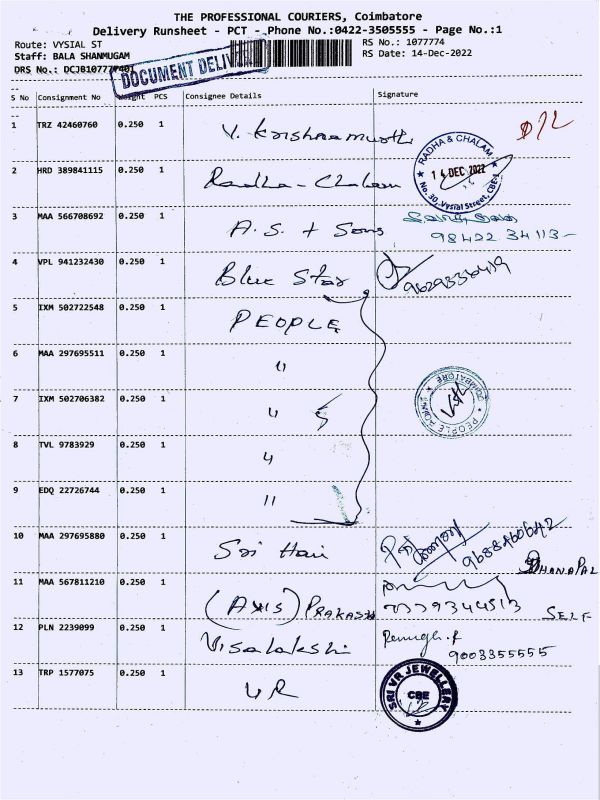 THE PROFESSIONAL COURIERS, Coimbatore
Delivery Runsheet - PCT - Phone No.:0422-3505555 - Page No.:1
Route: VYSIAL ST
RS No.: 1077774
Staff: BALA SHANMUGAM
RS Date: 14-Dec-2022
DRS No.:
DOCUMENT
S No Consignment No Weight PCS Consignee Details Signature
1 TRZ 42460760 0.250 1 V. Krishnamurthi
RADHA & CHALAM
14 DEC 2022
No. 30, Vysial Street, CBE-1
2 HRD 389841115 0.250 1 Radha-Chalam
3 MAA 566708692 0.250 1 A.S. + Sons
98422 34113-
4 VPL 941232430 0.250 1 Blue Star 9629336419
5 IXM 502722548 0.250 1 PEOPLE
6 MAA 297695511 0.250 1 "
7 IXM 502706382 0.250 1 "
COIMBATORE
PEOPLE
8 TVL 9783929 0.250 1 "
9 EDQ 22726744 0.250 1 "
10 MAA 297695880 0.250 1 Sri Hari 9688460642
DHANAPAL
11 MAA 567811210 0.250 1 (AXIS) PRAKASH SELF
12 PLN 2239099 0.250 1 Visalakshi
9003355555
13 TRP 1577075 0.250 1 VR
SRI VR JEWELLERY
CBE